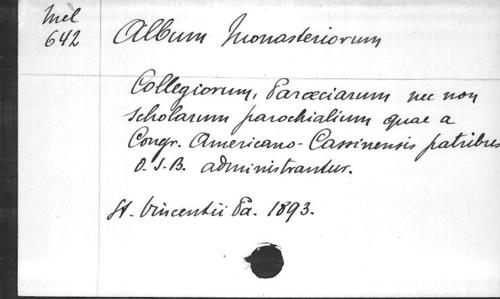 Mel
642
Album Monasteriorum
Collegiorum, Paroeciarum nec non
scholarum parochialium quae a
Congr. Americano-Cassinensis patribus
O.S.B. administrantur.
St. Vincentii Pa. 1893.